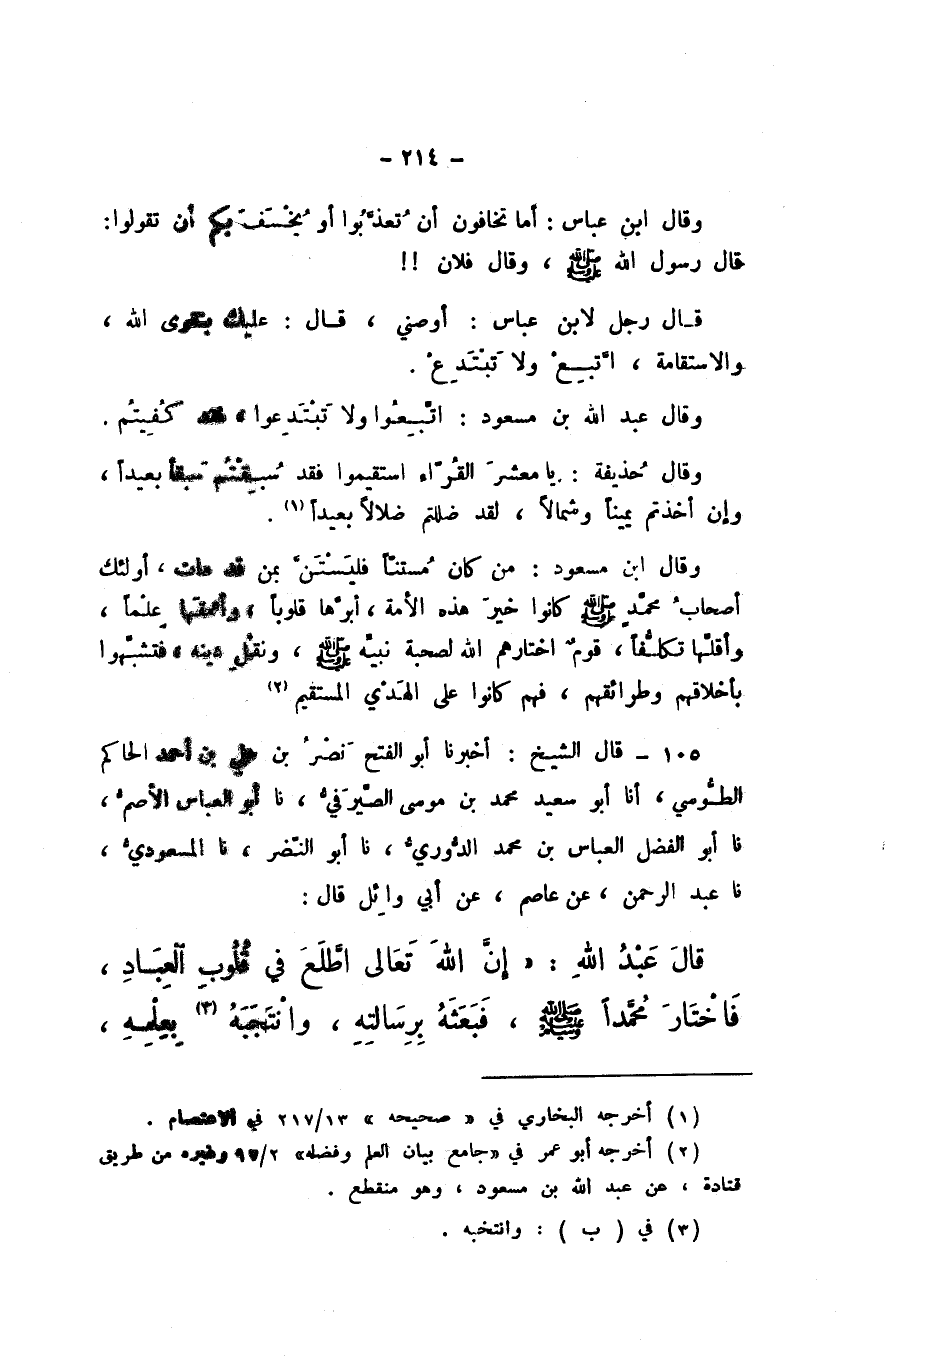 - ٢١٤ -
وقال ابن عباس : أما تخافون أن تُعذَّبُوا أو يُخْسَفَ بكم أن تقولوا :
قال رسول الله ﷺ ، وقال فلان !!
قـال رجل لابن عباس : أوصني ، قـال : عليك بتقوى الله ،
والاستقامة ، اتَّبِـعْ ولا تَبْتَدِعْ .
وقال عبد الله بن مسعود : اتَّبِعُوا ولا تَبْتَدِعوا ، فقد كُفِيتُم .
وقال حُذيفة : يا معشرَ القُرّاء استقيموا فقد سُبِقْتُم سَبقاً بعيداً ،
وإن أخذتم يميناً وشمالاً ، لقد ضللتم ضلالاً بعيداً (١) .
وقال ابن مسعود : من كان مُستنّاً فليَسْتَنَّ بمن قد مات ، أولئك
أصحابُ محمّدٍ ﷺ كانوا خيرَ هذه الأمة ، أبرَّها قلوباً ، وأعمقَها عِلْماً ،
وأقلّها تكلُّفاً ، قومٌ اختارهم الله لصحبة نبيّه ﷺ ، ونقْلِ دينه ، فتشبّهوا
بأخلاقهم وطرائقهم ، فهم كانوا على الهَدْي المستقيم (٢)
١٠٥ - قال الشيخ : أخبرنا أبو الفتح نَصْرُ بن علي بن أحمد الحاكم
الطُّوسي ، أنا أبو سعيد محمد بن موسى الصَّيْرَفيُّ ، نا أبو العباس الأصمُّ ،
نا أبو الفضل العباس بن محمد الدُّوريُّ ، نا أبو النَّضر ، نا المسعوديُّ ،
نا عبد الرحمن ، عن عاصم ، عن أبي وائِل قال :
قالَ عَبْدُ اللهِ : « إنَّ اللهَ تَعَالى اطَّلَعَ في قُلُوبِ العِبَـادِ ،
فَاخْتَارَ مُحمَّداً ﷺ ، فَبَعَثَهُ بِرِسَالتِهِ ، وانْتَجَبَهُ (٣) بِعِلْمِـهِ ،
(١) أخرجه البخاري في « صحيحه » ٢١٧/١٣ في الاعتصام .
(٢) أخرجه أبو عمر في «جامع بيان العلم وفضله» ٩٧/٢ وغيره من طريق
قتادة ، عن عبد الله بن مسعود ، وهو منقطع .
(٣) في ( ب ) : وانتخبه .